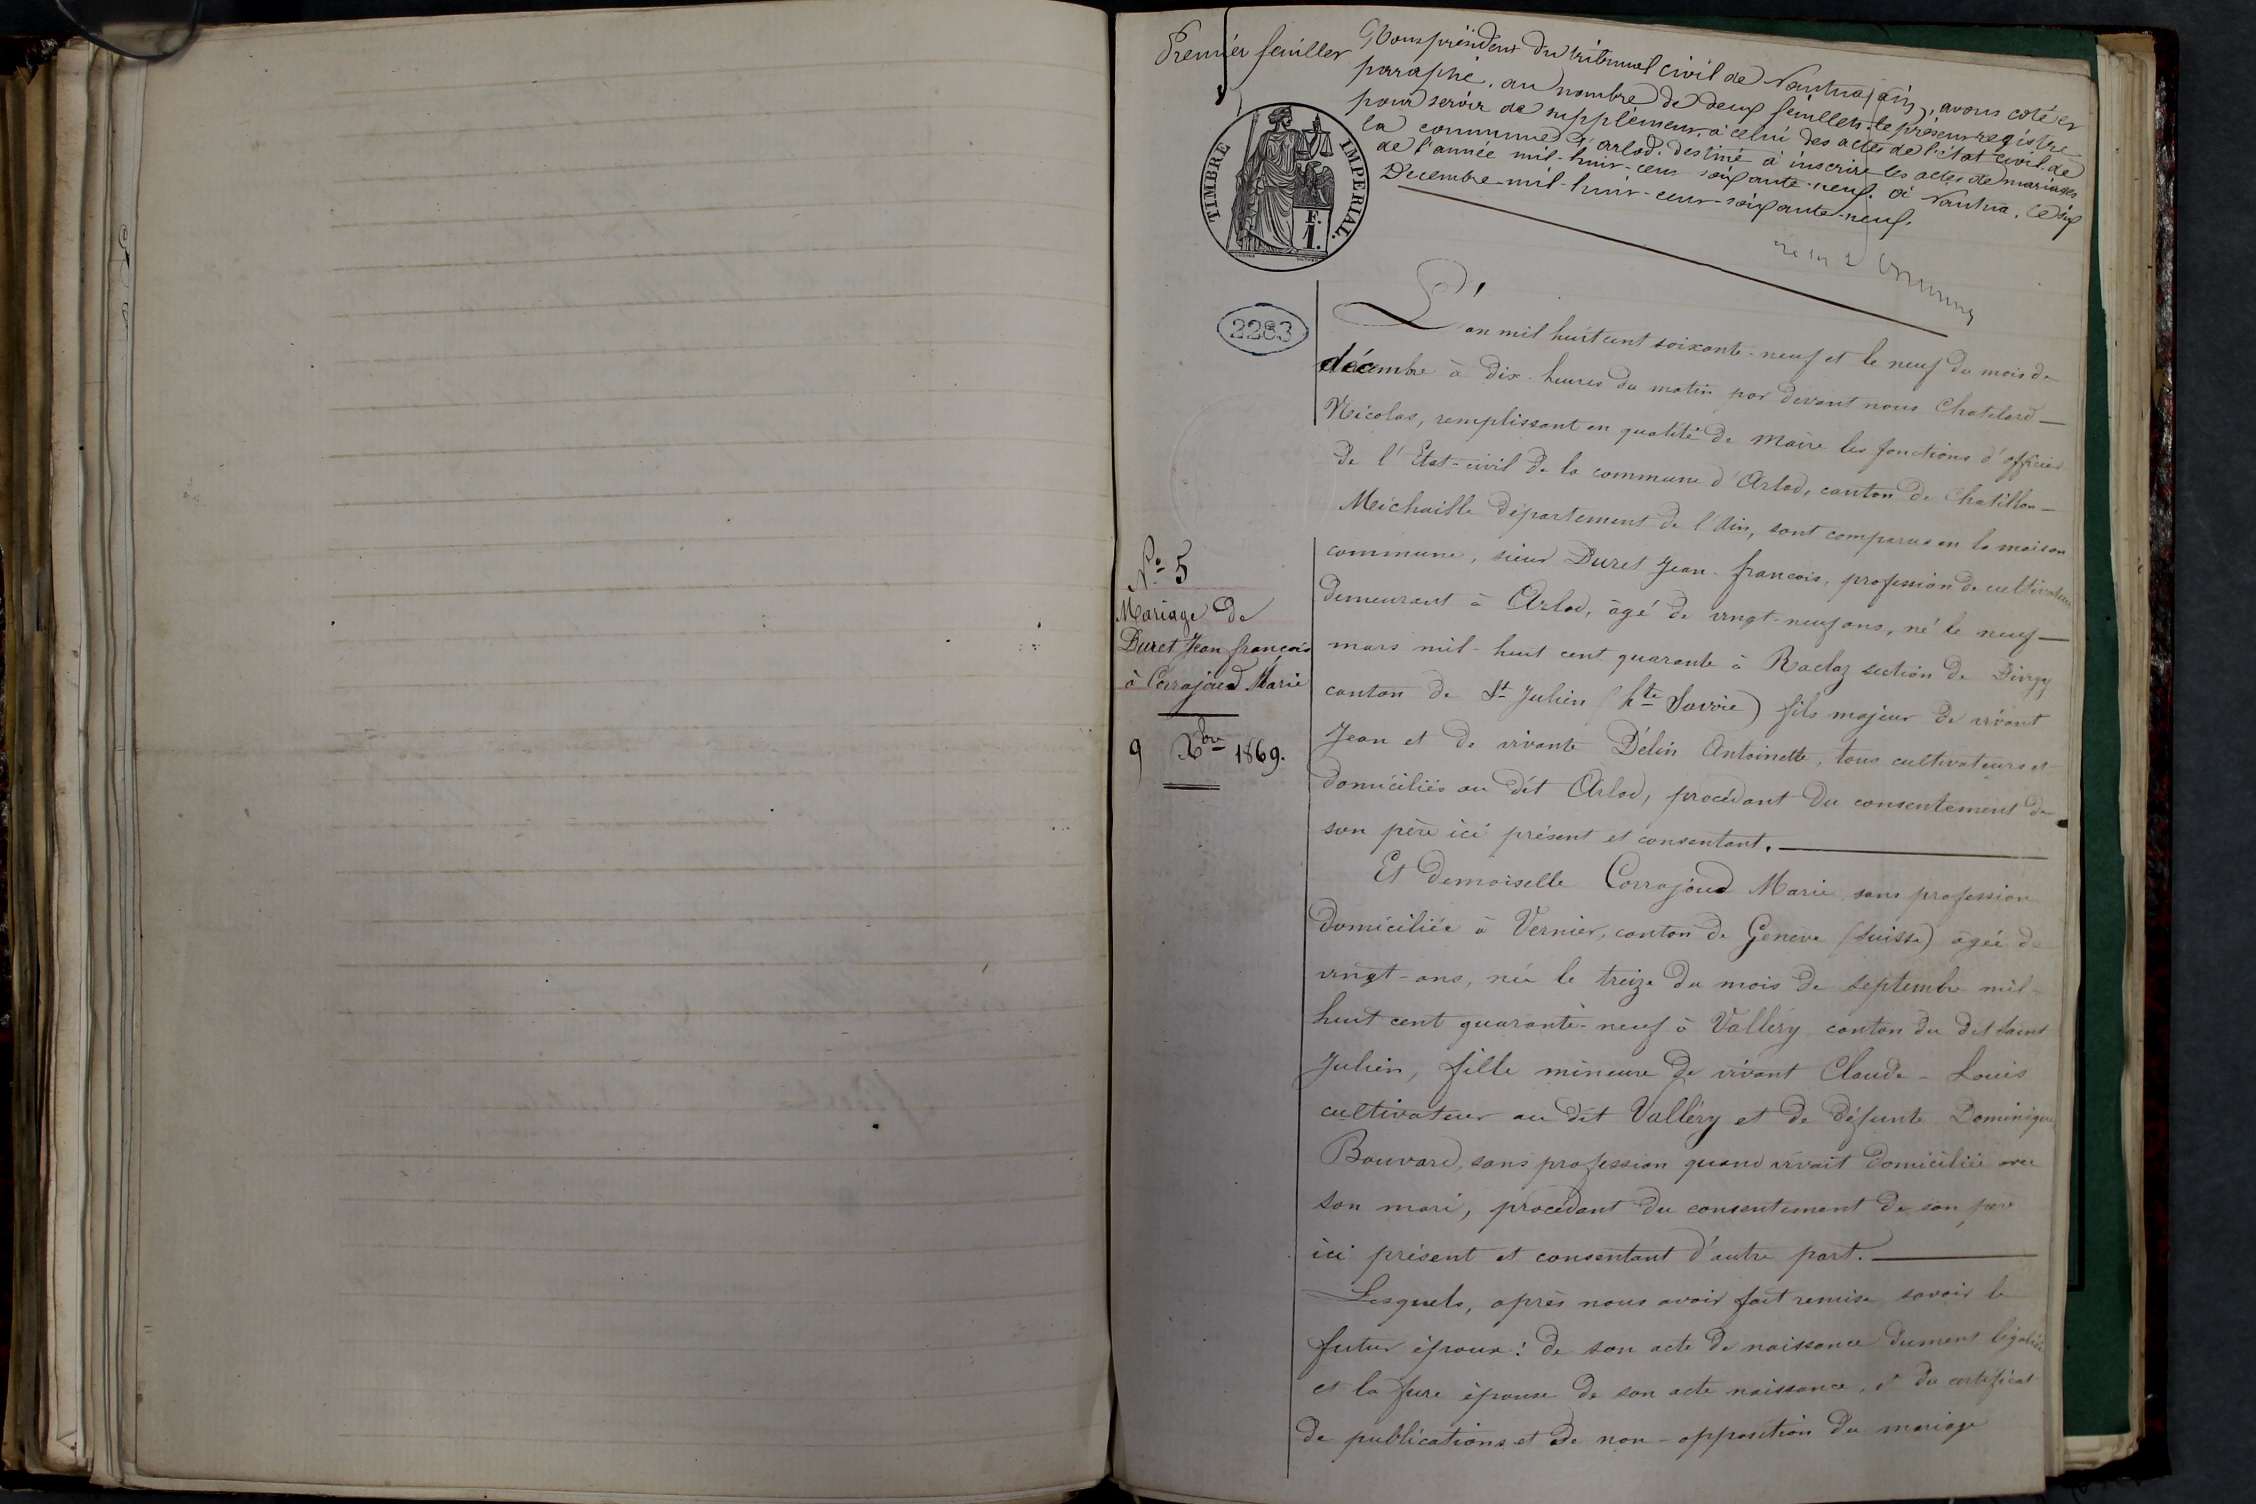 Premier feuillet
Nous président du tribunal civil de Nantua (ain), avons coté et
paraphé, au nombre de deux feuillets, le présent registre
pour servir de supplément à celui des actes de l'état civil de
la commune d'arlod, destiné à inscrire les actes de mariages
de l'année mil-huit-cent soixante-neuf. à Nantua, le six
Decembre mil-huit-cent-soixante-neuf.
TIMBRE IMPERIAL.
F.
1.
2283
L'an mil huit cent soixante-neuf et le neuf du mois de
décembre à dix heures du matin par devant nous Chatelard
Nicolas, remplissant en qualité de Maire les fonctions d'officier
de l'Etat-civil de la commune d'Arlod, canton de Chatillon-
Michaille département de l'Ain, sont comparus en la maison
N° 5
Mariage de
Duret Jean françois
à Corrajoud Marie
9 Xbre 1869.
commune, sieur Duret Jean-francois, profession de cultivateur
demeurant à Arlod, âgé de vingt-neuf ans, né le neuf
mars mil-huit cent quarante à Raclaz section de Dingy
canton de St Julien (hte Savoie) fils majeur de vivant
Jean et de vivante Délin Antoinette, tous cultivateurs et
domiciliés au dit Arlod, procédant du consentement de
son père ici présent et consentant.
Et demoiselle Corrajoud Marie sans profession
domiciliée à Vernier, canton de Genève (Suisse) âgée de
vingt-ans, née le treize du mois de septembre mil-
huit cent quarante-neuf à Valléry canton du dit Saint
Julien, fille mineure de vivant Claude-Louis
cultivateur au dit Valléry et de défunte Dominique
Bouvard, sans profession quand vivait domiciliée avec
son mari, procédant du consentement de son père
ici présent et consentant d'autre part.
Lesquels, après nous avoir fait remise savoir le
futur époux: de son acte de naissance dument légalisé
et la fure épouse de son acte naissance, et du certificat
de publications et de non-opposition du mariage